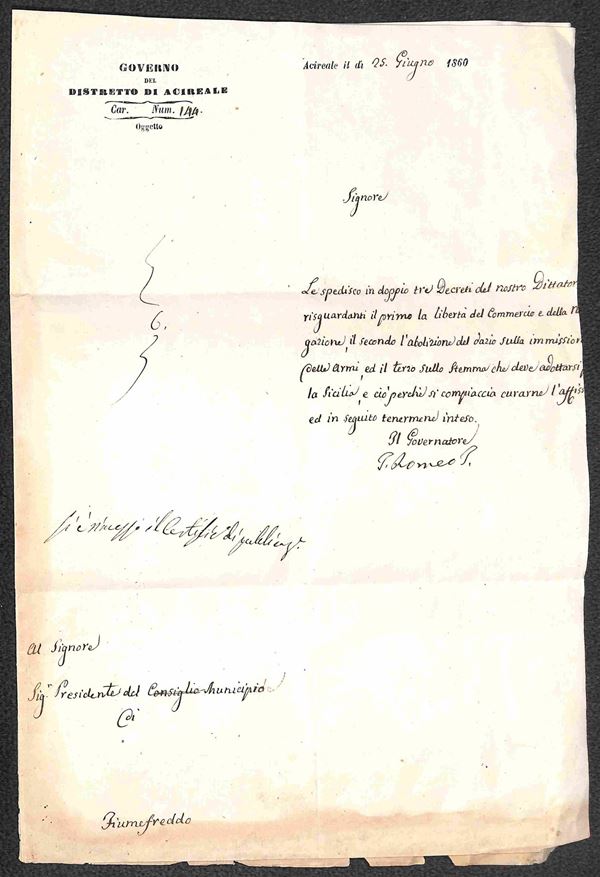 GOVERNO
DEL
DISTRETTO DI ACIREALE
Car. Num. 144.
Oggetto
Acireale il dì 25. Giugno 1860
Signore
6.
Le spedisco in doppio tre Decreti del nostro Dittator
risguardanti il primo la libertà del Commercio e della na
gazione, il secondo l'abolizione del dazio sulla immission
delle Armi, ed il terzo sullo Stemma che deve adottarsi p
la Sicilia, e ciò perchè si compiaccia curarne l'affiss
ed in seguito tenermene inteso.
Il Governatore
P. Romeo P.
si è rimesso il Certific di pubblicaz.
Al Signore
Sigr Presidente del Consiglio Municipio
di
Fiumefreddo